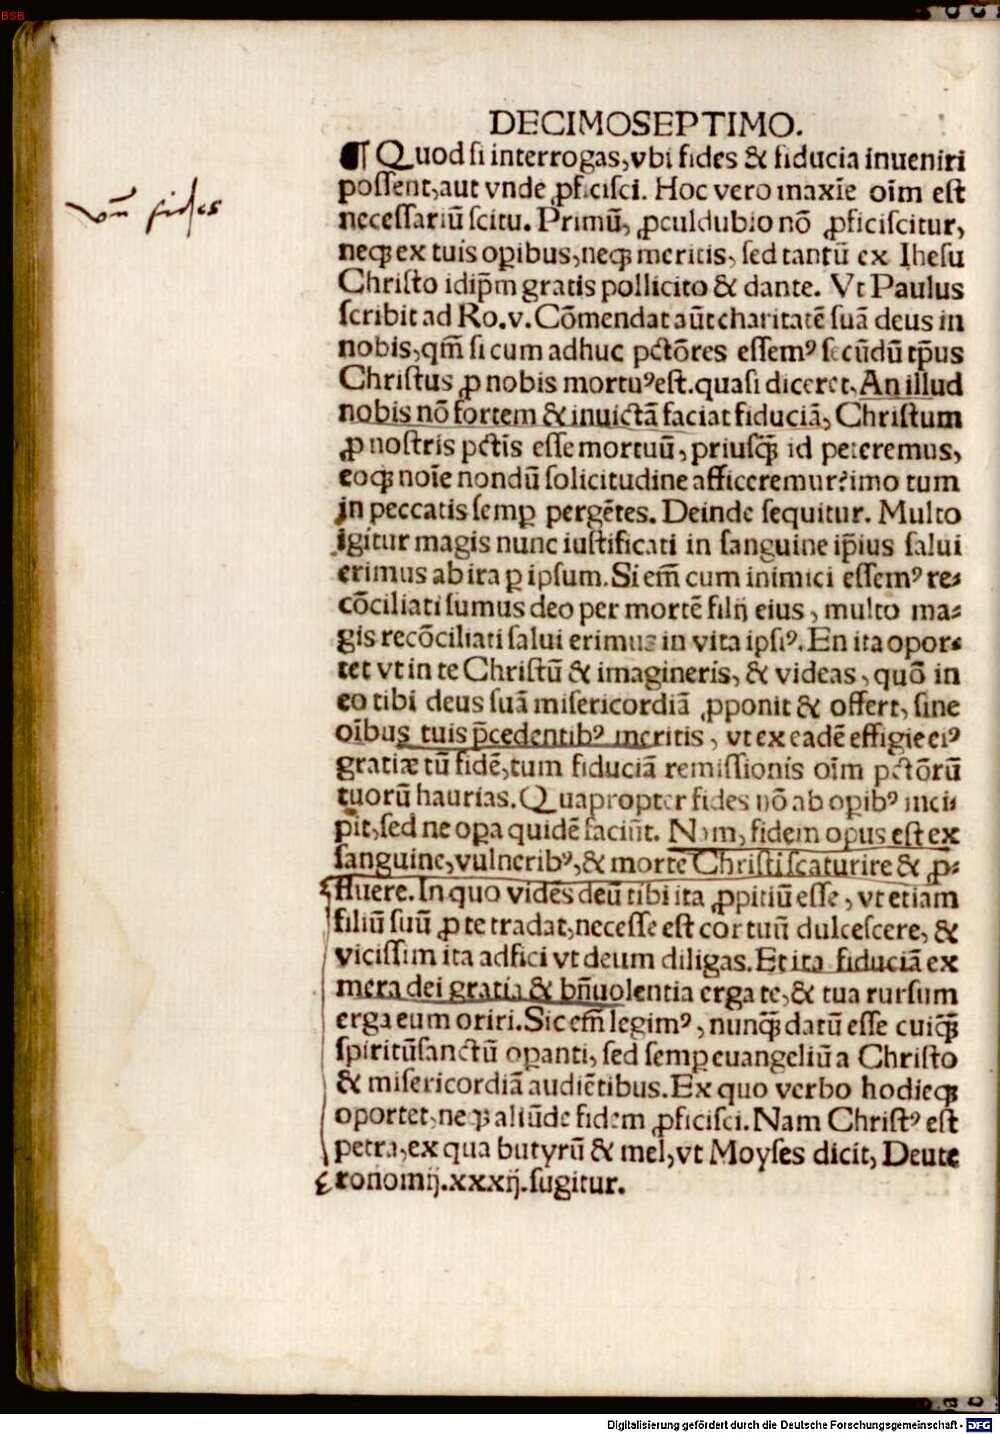 BSB
DECIMOSEPTIMO.
¶ Quod ſi interrogas, vbi fides & fiducia inueniri
poſſent, aut vnde ꝓficiſci. Hoc vero maxīe oīm eſt
neceſſariū ſcitu. Primū, ꝓculdubio nō ꝓficiſcitur,
neqꝫ ex tuis oꝑibus, neqꝫ meritis, ſed tantū ex Iheſu
Chriſto idip̄m gratis pollicito & dante. Vt Paulus
ſcribit ad Ro.v. Cōmendat aūt charitatē ſuā deus in
nobis, qm̄ ſi cum adhuc pctōres eſſemꝰ ſecūdū tp̄us
Chriſtus ꝓ nobis mortuꝰ eſt. quaſi diceret, An illud
nobis nō fortem & inuictā faciat fiduciā, Chriſtum
ꝓ noſtris pctīs eſſe mortuū, priuſqꝫ̄ id peteremus,
eoqꝫ noīe nondū ſolicitudine afficeremur? imo tum
in peccatis ſemꝑ pergētes. Deinde ſequitur. Multo
igitur magis nunc iuſtificati in ſanguine ip̄ius ſalui
erimus ab ira ꝑ ipſum. Si em̄ cum inimici eſſemꝰ re⸗
cōciliati ſumus deo per mortē filij eius, multo ma⸗
gis recōciliati ſalui erimus in vita ipſiꝰ. En ita opor⸗
tet vt in te Chriſtū & imagineris, & videas, quō in
eo tibi deus ſuā miſericordiā ꝓponit & offert, ſine
oībus tuis p̄cedentibꝰ meritis, vt ex eadē effigie eiꝰ
gratiæ tū fidē, tum fiduciā remiſſionis oīm pctōrū
tuorū haurias. Quapropter fides nō ab oꝑibꝰ inci⸗
pit, ſed ne oꝑa quidē faciūt. Nam, fidem opus eſt ex
ſanguine, vulneribꝰ, & morte Chriſti ſcaturire & ꝓ⸗
fluere. In quo vidēs deū tibi ita ꝓpitiū eſſe, vt etiam
filiū ſuū ꝓ te tradat, neceſſe eſt cor tuū dulceſcere, &
viciſſim ita adfici vt deum diligas. Et ita fiduciā ex
mera dei gratia & bn̄uolentia erga te, & tua rurſum
erga eum oriri. Sic em̄ legimꝰ, nunqꝫ̄ datū eſſe cuiqꝫ̄
ſpiritūſanctū oꝑanti, ſed ſemꝑ euangeliū a Chriſto
& miſericordiā audiētibus. Ex quo verbo hodieqꝫ
oportet, neqꝫ aliūde fidem ꝓficiſci. Nam Chriſtꝰ eſt
petra, ex qua butyrū & mel, vt Moyſes dicit, Deute
ronomij. xxxij. ſugitur.
vn̄ fides
Digitalisierung gefördert durch die Deutsche Forschungsgemeinschaft - DFG